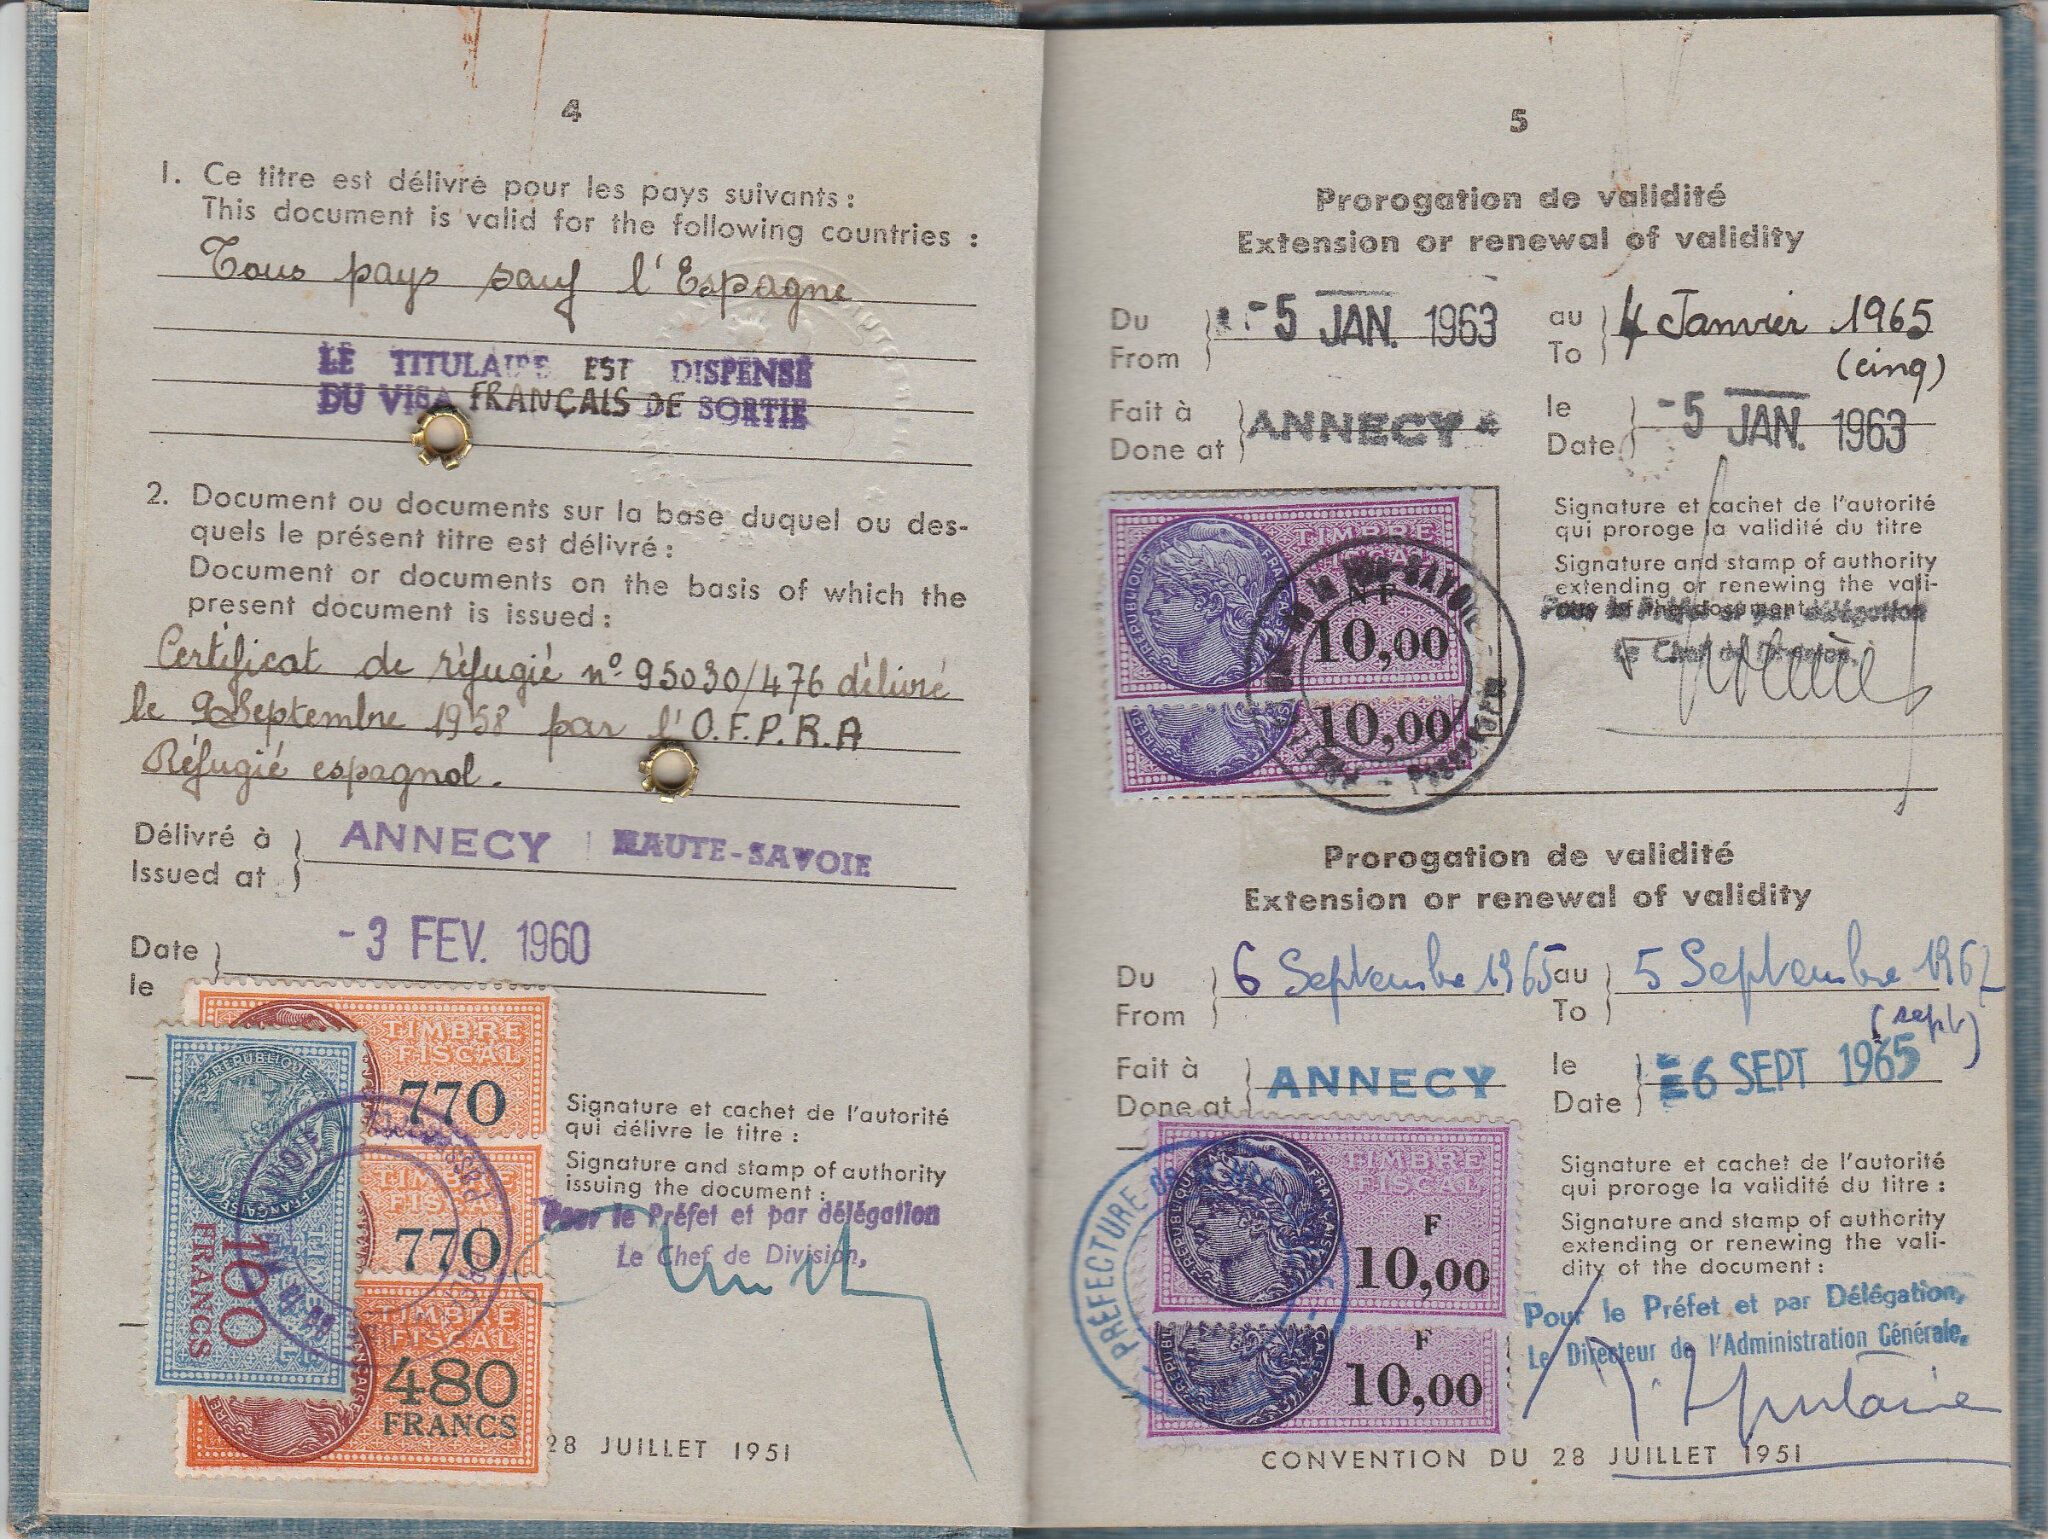 4
1. Ce titre est délivré pour les pays suivants :
This document is valid for the following countries :
Tous pays sauf l'Espagne
LE TITULAIRE EST DISPENSÉ
DU VISA FRANÇAIS DE SORTIE
2. Document ou documents sur la base duquel ou des-
quels le présent titre est délivré :
Document or documents on the basis of which the
present document is issued :
Certificat de réfugié nº 95030/476 délivré
le 9 Septembre 1958 par l'O.F.P.R.A
Réfugié espagnol.
Délivré à
Issued at
ANNECY HAUTE-SAVOIE
Date
le
-3 FEV. 1960
TIMBRE
FISCAL
770
TIMBRE
FISCAL
770
TIMBRE
FISCAL
480
FRANCS
RÉPUBLIQUE FRANÇAISE
100
FRANCS
Signature et cachet de l'autorité
qui délivre le titre :
Signature and stamp of authority
issuing the document :
Pour le Préfet et par délégation
Le Chef de Division,
28 JUILLET 1951
5
Prorogation de validité
Extension or renewal of validity
Du
From
-5 JAN. 1963
au
To
4 Janvier 1965
(cinq)
Fait à
Done at
ANNECY
le
Date
-5 JAN. 1963
RÉPUBLIQUE FRANÇAISE
TIMBRE
FISCAL
NF
10,00
10,00
Signature et cachet de l'autorité
qui proroge la validité du titre
Signature and stamp of authority
extending or renewing the vali-
dity of the document
Pour le Préfet et par délégation
Le Chef de Division,
Prorogation de validité
Extension or renewal of validity
Du
From
6 Septembre 1965
au
To
5 Septembre 1967
(sept)
Fait à
Done at
ANNECY
le
Date
-6 SEPT 1965
PRÉFECTURE
RÉPUBLIQUE FRANÇAISE
TIMBRE
FISCAL
F
10,00
F
10,00
Signature et cachet de l'autorité
qui proroge la validité du titre :
Signature and stamp of authority
extending or renewing the vali-
dity of the document :
Pour le Préfet et par Délégation,
Le Directeur de l'Administration Générale,
CONVENTION DU 28 JUILLET 1951